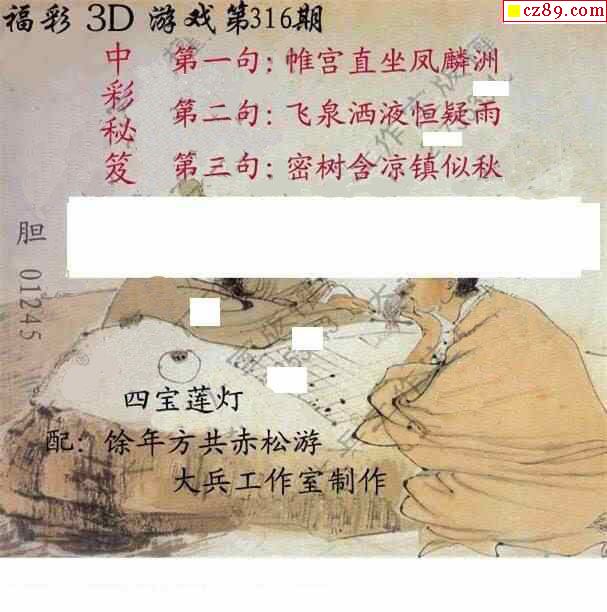 cz89.com
福彩 3D 游戏第316期
中彩秘笈
第一句：帷宫直坐凤麟洲
第二句：飞泉洒液恒疑雨
第三句：密树含凉镇似秋
胆 01245
四宝莲灯
配：馀年方共赤松游
大兵工作室制作